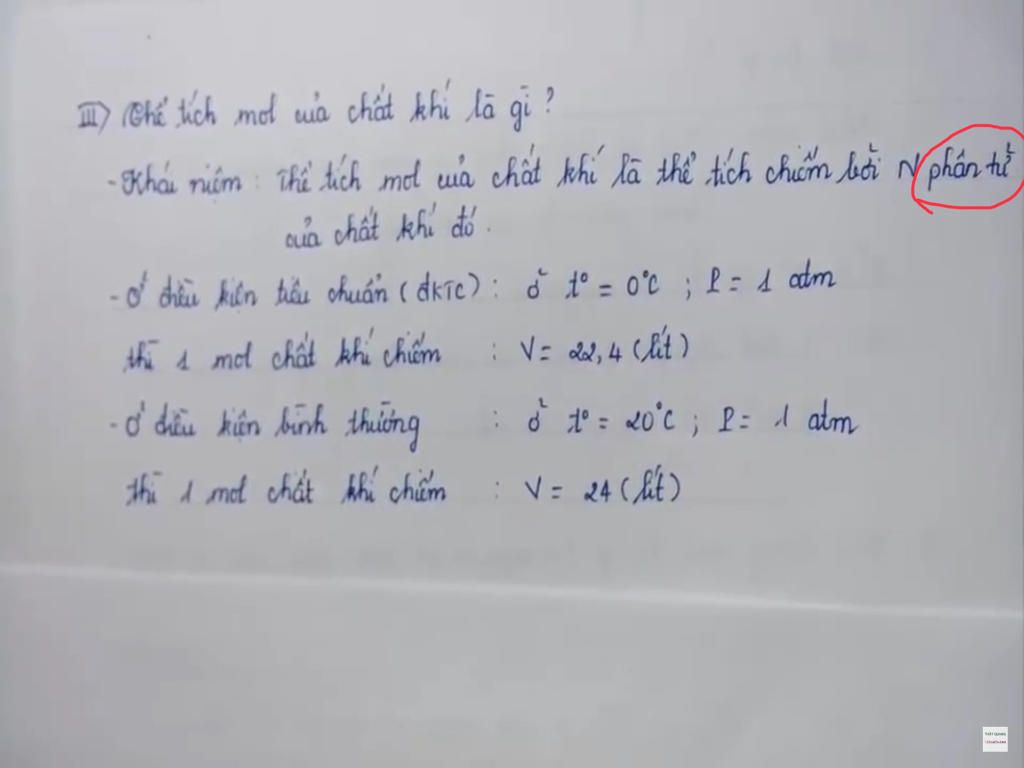 III) Thể tích mol của chất khí là gì?
- Khái niệm: Thể tích mol của chất khí là thể tích chiếm bởi N phân tử
của chất khí đó.
- Ở điều kiện tiêu chuẩn (đktc): ở t° = 0°C ; P = 1 atm
thì 1 mol chất khí chiếm : V = 22,4 (lít)
- Ở điều kiện bình thường : ở t° = 20°C ; P = 1 atm
thì 1 mol chất khí chiếm : V = 24 (lít)
THẦY QUANG